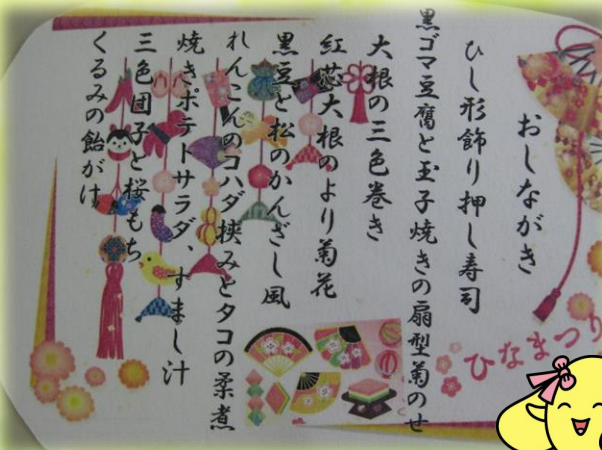 おしながき
ひし形飾り押し寿司
黒ゴマ豆腐と玉子焼きの扇型菊のせ
大根の三色巻き
紅芯大根のより菊花
黒豆と松のかんざし風
れんこんのコハダ挟みとタコの柔煮
焼きポテトサラダ、すまし汁
三色団子と桜もち
くるみの飴がけ
ひなまつり